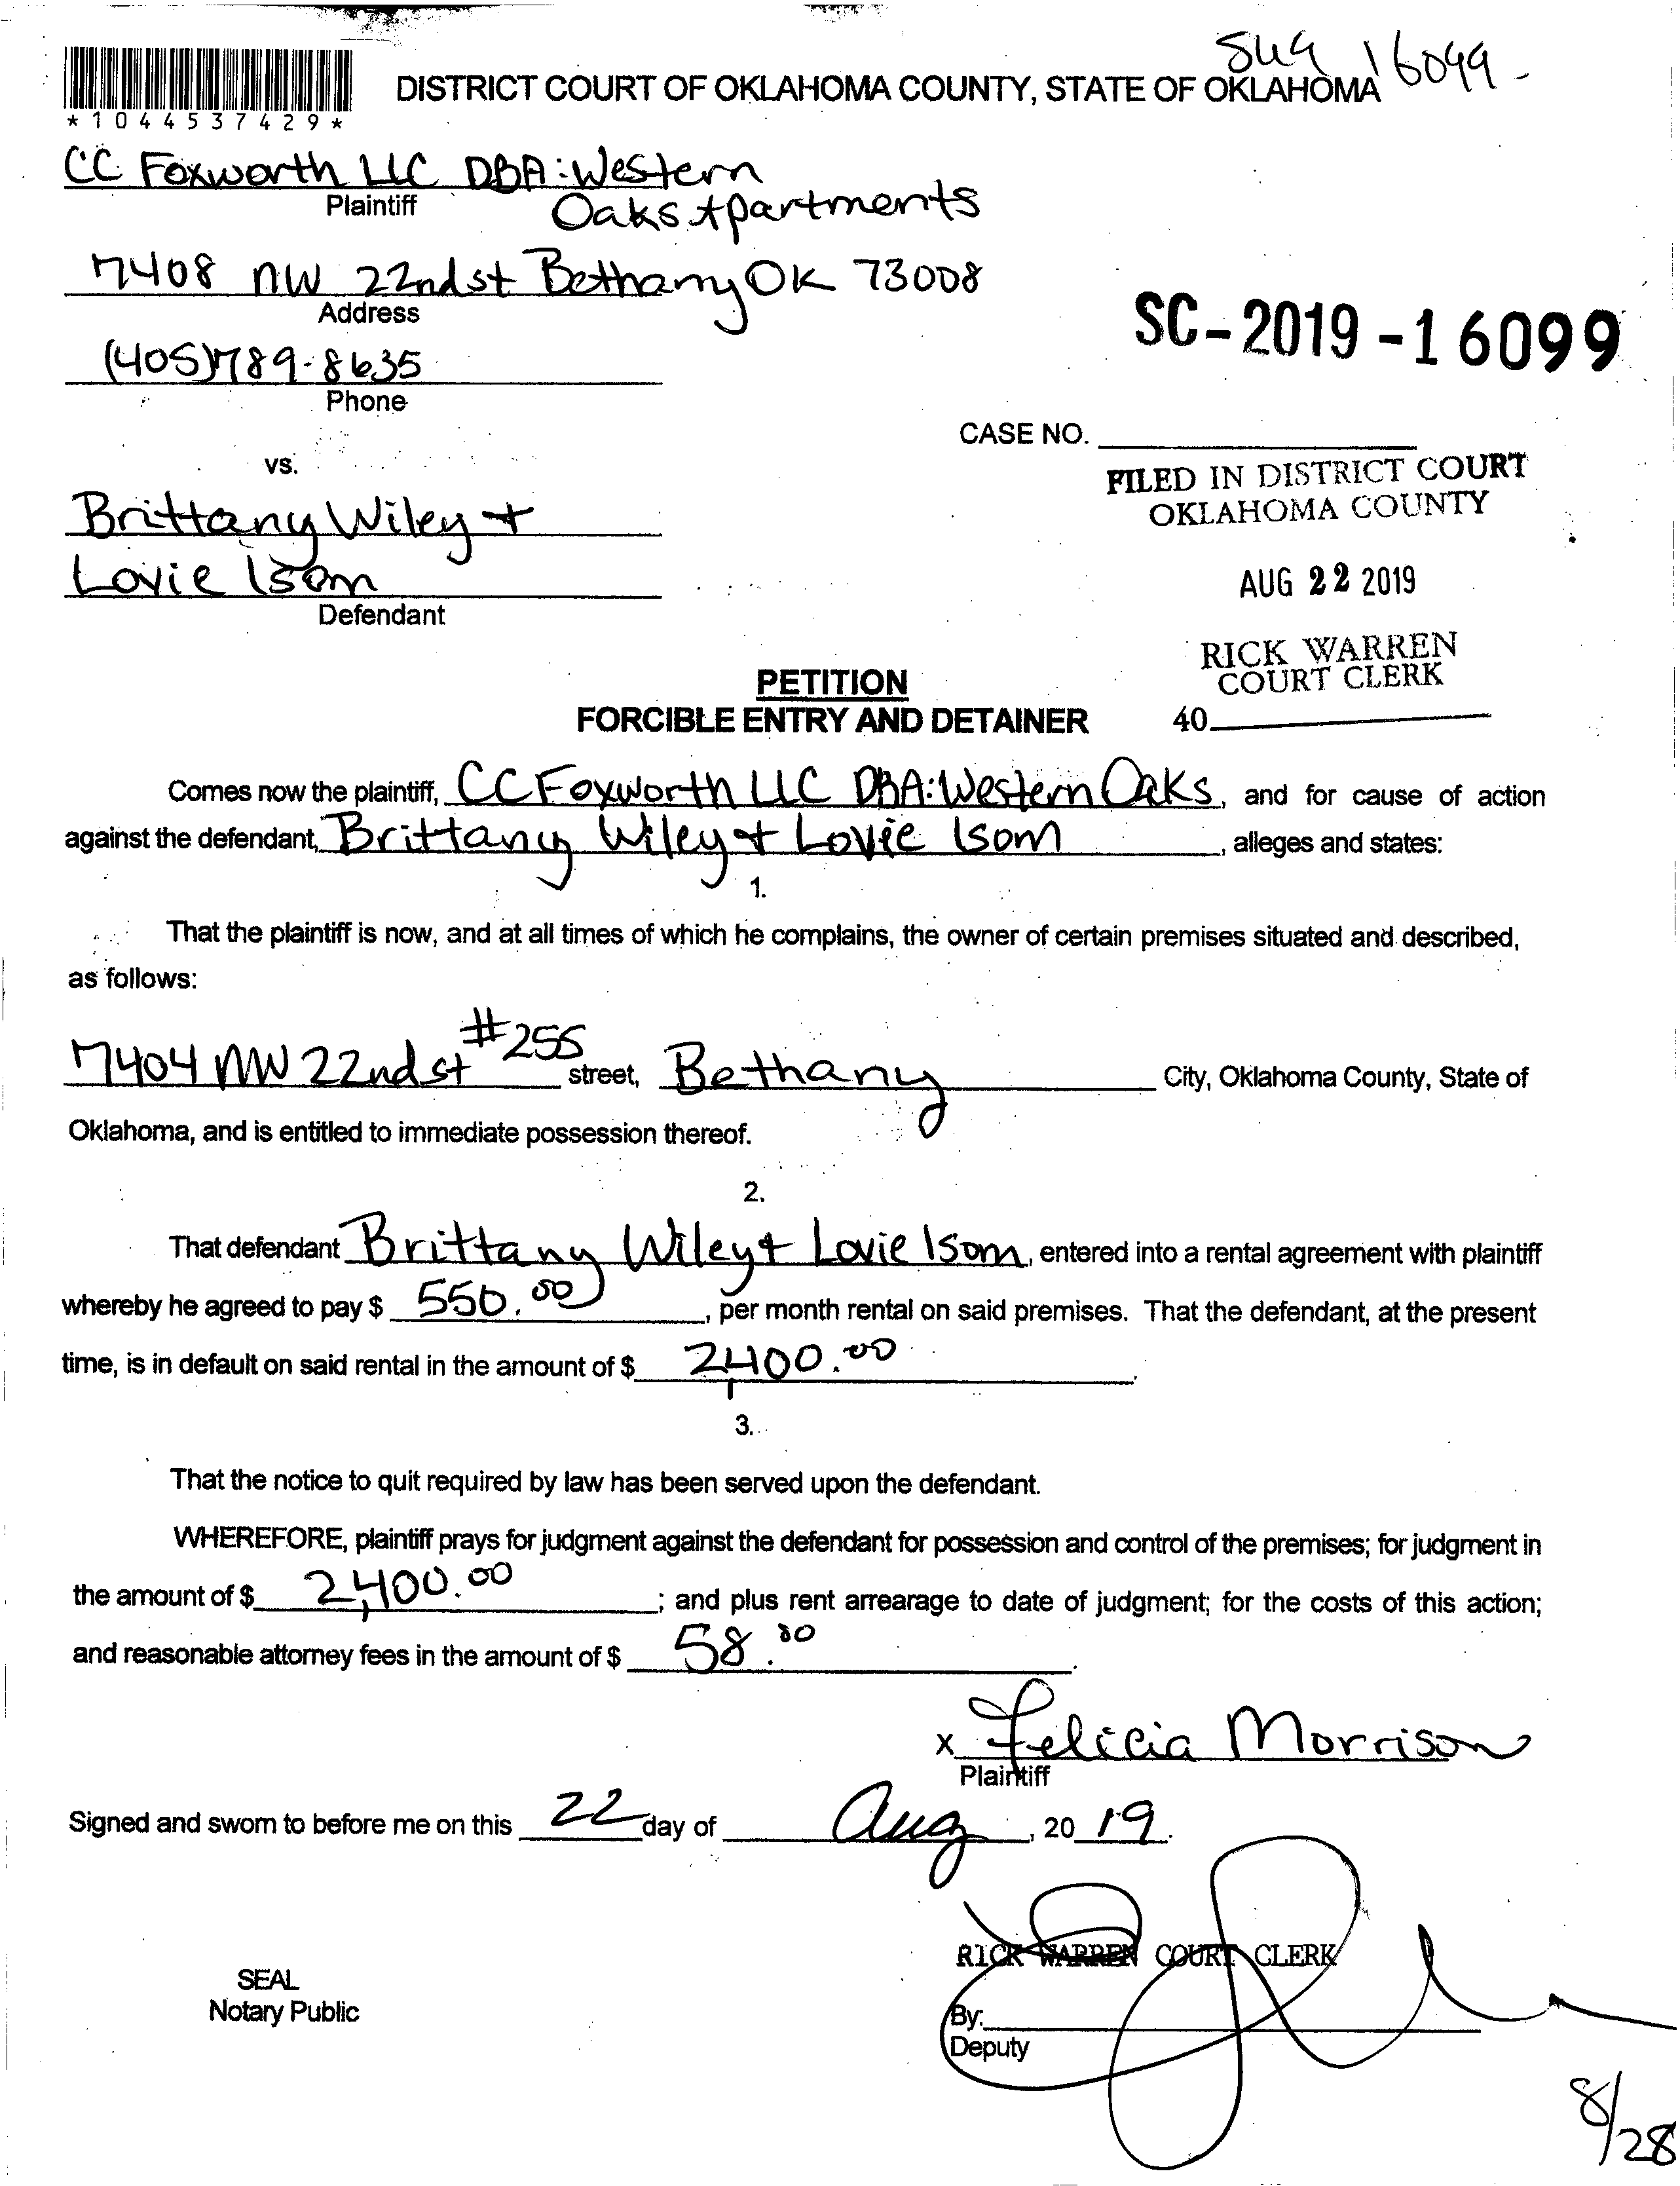 Sug 16099 -
DISTRICT COURT OF OKLAHOMA COUNTY, STATE OF OKLAHOMA
*1044537429*
CC Foxworth LLC DBA: Western
Plaintiff
Oaks Apartments
7408 NW 22nd st Bethany OK 73008
Address
(405)789-8635
Phone
SC-2019-16099
CASE NO.
vs.
FILED IN DISTRICT COURT
OKLAHOMA COUNTY
Brittany Wiley +
Lovie Isom
Defendant
AUG 22 2019
RICK WARREN
COURT CLERK
40
PETITION
FORCIBLE ENTRY AND DETAINER
Comes now the plaintiff, CC Foxworth LLC DBA: Western Oaks, and for cause of action
against the defendant, Brittany Wiley + Lovie Isom, alleges and states:
1.
That the plaintiff is now, and at all times of which he complains, the owner of certain premises situated and described,
as follows:
7404 NW 22nd st #255 street, Bethany City, Oklahoma County, State of
Oklahoma, and is entitled to immediate possession thereof.
2.
That defendant Brittany Wiley + Lovie Isom, entered into a rental agreement with plaintiff
whereby he agreed to pay $ 550.00, per month rental on said premises. That the defendant, at the present
time, is in default on said rental in the amount of $ 2,400.00.
3.
That the notice to quit required by law has been served upon the defendant.
WHEREFORE, plaintiff prays for judgment against the defendant for possession and control of the premises; for judgment in
the amount of $ 2,400.00; and plus rent arrearage to date of judgment; for the costs of this action;
and reasonable attorney fees in the amount of $ 58.00.
x Felicia Morrison
Plaintiff
Signed and sworn to before me on this 22 day of Aug, 2019.
RICK WARREN COURT CLERK
SEAL
Notary Public
By:
Deputy
8/28